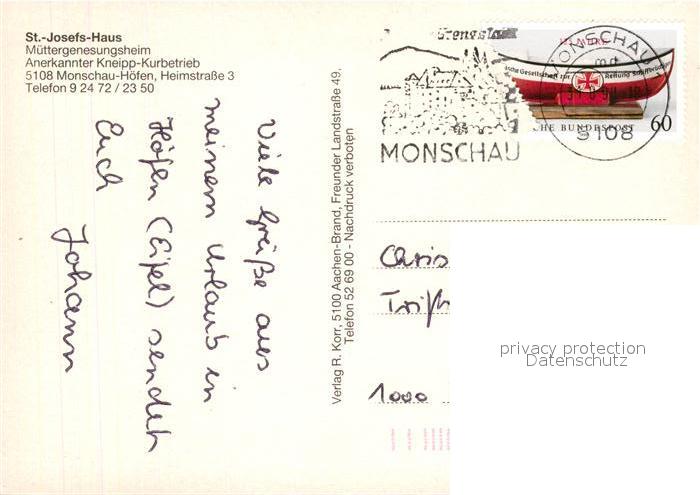 St.-Josefs-Haus
Müttergenesungsheim
Anerkannter Kneipp-Kurbetrieb
5108 Monschau-Höfen, Heimstraße 3
Telefon 9 24 72 / 23 50
Viele Grüße aus
meinem Urlaub in
Höfen (Eifel) sendet
Euch
Johann
Verlag R. Korr, 5100 Aachen-Brand, Freunder Landstraße 49,
Telefon 52 69 00 - Nachdruck verboten
MONSCHAU
MONSCHAU
5108
sche Gesellschaft zur Rettung Schiffbrüchiger
CHE BUNDESPOST 60
Chris
1000
privacy protection
Datenschutz